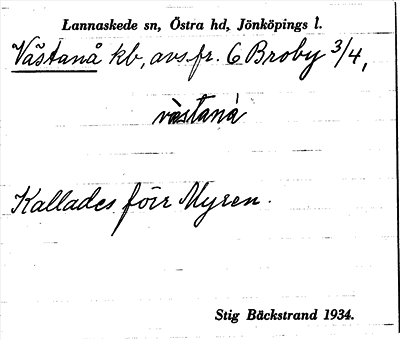 Lannaskede sn, Östra hd, Jönköpings l.
Västanå kb, avs. fr. 6 Broby 3/4,
vàstanå
Kallades förr Myren.
Stig Bäckstrand 1934.